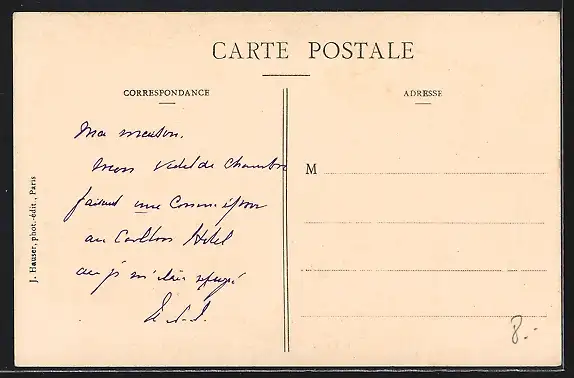 CARTE POSTALE
CORRESPONDANCE
ADRESSE
Ma maison.
mon Valet de Chambre
faisant une Commission
au Carlton Hotel
où je m'étais réfugié
M
J. Hauser, phot.-édit., Paris
8.-